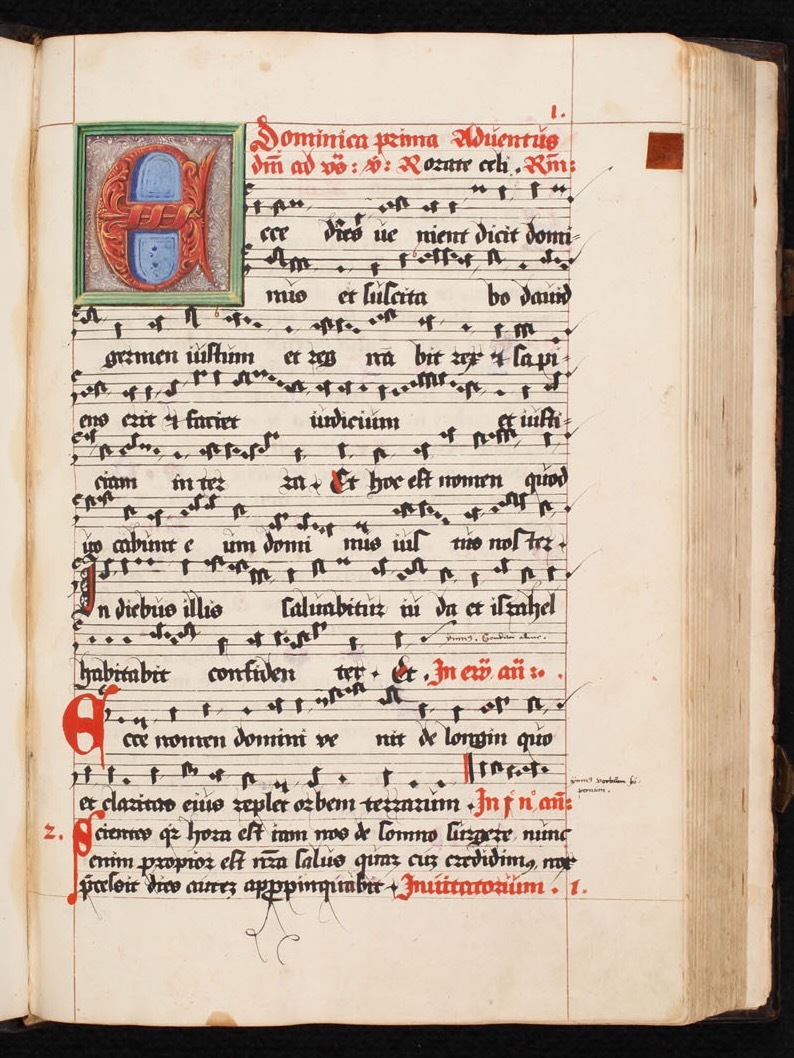 1.
Dominica prima Aduentus
dm̄ ad vṏ : v̄ : Rorate celi . Rm̄ :
Ecce dies ue nient dicit domi-
nus et suscita bo dauid
germen iustum et reg na bit rex & sapi-
ens erit & faciet iudicium et iusti-
ciam in ter ra . Et hoc est nomen quod
uo cabunt e um domi nus ius tus nos ter .
In diebus illis saluabitur iu da et israhel
habitabit confiden ter . Et . In ew̄ an̄ : .
Ecce nomen domini ve nit de longin quo
et claritas eius replet orbem terrarum . In p̊ n̊ an̄ :
2. Scientes qr̄ hora est iam nos de somno surgere nunc
enim propior est nr̄a salus quaz cuz credidimꝰ nox
p̄cessit dies autez appropinquabit . Inuitatorium . 1.